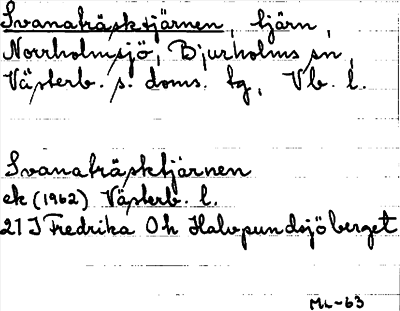 Svanaträsktjärnen, tjärn,
Norrholmsjö, Bjurholms sn,
Västerb. s. doms. tg, Vb. l.
Svanaträsktjärnen
ek (1962) Västerb. l.
21 J Fredrika Oh Halvpundsjöberget
ML-63